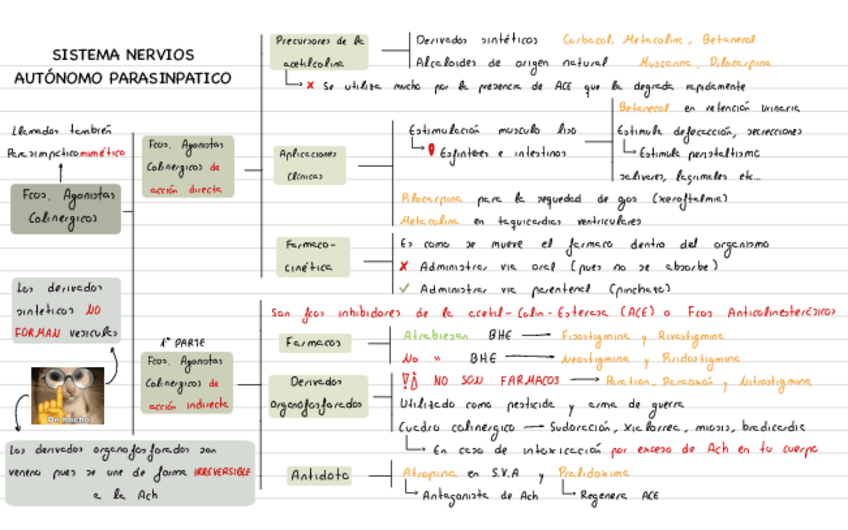 SISTEMA NERVIOS
AUTÓNOMO PARASINPATICO
Llamados también
Parasimpáticomimético
Fcos. Agonistas
Colinergicos
Los derivados
sinteticos NO
FORMAN vesiculas
Los derivados organofosforados son
veneno pues se une de forma IRREVERSIBLE
a la Ach
Fcos. Agonistas
Colinergicos de
acción directa
Precursores de la
acetilcolina
Derivados sintéticos Carbacol, Metacolina, Betanecol
Alcaloides de origen natural Muscarina, Pilocarpina
X Se utiliza mucho por la presencia de ACE que la degrada rapidamente
Aplicaciones
Clínicas
Estimulación musculo liso
Esfinteres e intestinos
Betanecol en retención urinaria
Estimula defecación, secrecciones
Estimula peristaltismo
salivares, lagrimales etc...
Pilocarpina para la sequedad de ojos (xeroftalmia)
Metacolina en taquicardias ventriculares
Farmaco-
cinética
Es como se mueve el farmaco dentro del organismo
X Administrar via oral (pues no se absorbe)
✓ Administrar via parenteral (pinchato)
1ª PARTE
Fcos. Agonistas
Colinergicos de
acción indirecta
Son fcos inhibidores de la acetil-Colin-Esterasa (ACE) o Fcos Anticolinesterásicos
Farmacos
Atrabiesan BHE → Fisostigmina y Rivastigmina
No " BHE → Neostigmina y Piridostigmina
Derivados
Organofosforados
NO SON FARMACOS → Paration, Paraoxón y Nitrostigmina
Utilizado como pesticida y arma de guerra
Cuadro colinergico → Sudoración, miosis, bradicardia
En caso de intoxicación por exceso de Ach en tu cuerpo
Antidoto
Atropina en S.V.A y Pralidoxima
Antagonista de Ach
Regenera ACE